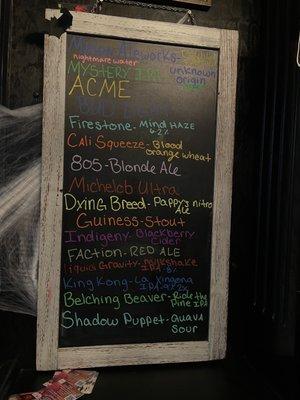 Mason Aleworks-
nightmare water
MYSTERY IPA
unknown
origin
ACME
Firestone - Mind HAZE
6.2%
Cali Squeeze - Blood
orange wheat
805 - Blonde Ale
Michelob Ultra
Dying Breed - Pappy's nitro
Ale
Guiness - Stout
Indigeny - Blackberry
Cider
FACTION - RED ALE
liquid Gravity - milkshake
IPA - 8%
King Kong - La Xingona
Belching Beaver - Ride the
Pine IPA
Shadow Puppet - Guava
Sour